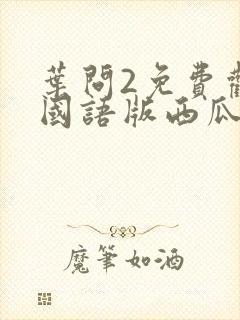 葉問2免費
國語版西瓜
魔筆如酒